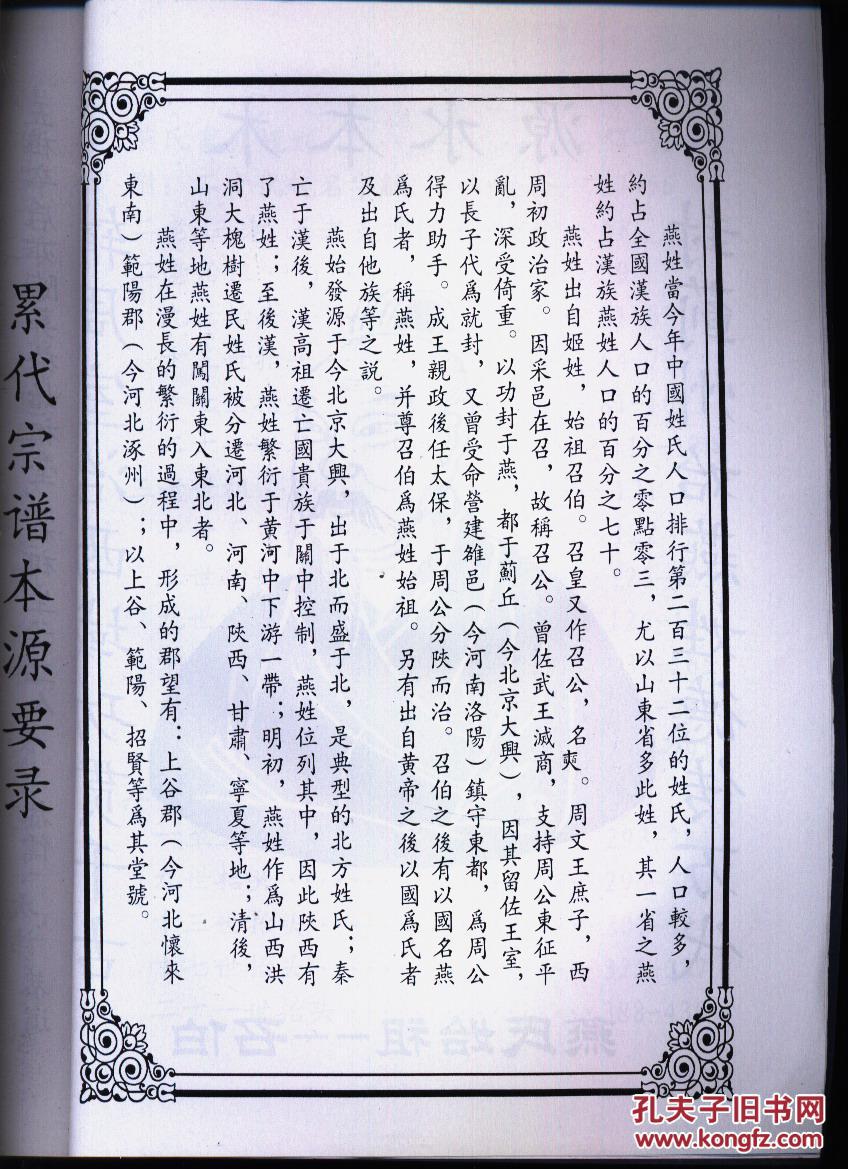 燕姓當今年中國姓氏人口排行第二百三十二位的姓氏，人口較多，
約占全國漢族人口的百分之零點零三，尤以山東省多此姓，其一省之燕
姓約占漢族燕姓人口的百分之七十。
燕姓出自姬姓，始祖召伯。召皇又作召公，名奭。周文王庶子，西
周初政治家。因采邑在召，故稱召公。曾佐武王滅商，支持周公東征平
亂，深受倚重。以功封于燕，都于薊丘（今北京大興），因其留佐王室，
以長子代爲就封，又曾受命營建雒邑（今河南洛陽）鎮守東都，爲周公
得力助手。成王親政後任太保，于周公分陝而治。召伯之後有以國名燕
爲氏者，稱燕姓，并尊召伯爲燕姓始祖。另有出自黃帝之後以國爲氏者
及出自他族等之説。
燕始發源于今北京大興，出于北而盛于北，是典型的北方姓氏；秦
亡于漢後，漢高祖遷亡國貴族于關中控制，燕姓位列其中，因此陝西有
了燕姓；至後漢，燕姓繁衍于黃河中下游一帶；明初，燕姓作爲山西洪
洞大槐樹遷民姓氏被分遷河北、河南、陝西、甘肅、寧夏等地；清後，
山東等地燕姓有闖關東入東北者。
燕姓在漫長的繁衍的過程中，形成的郡望有：上谷郡（今河北懷來
東南）範陽郡（今河北涿州）；以上谷、範陽、招賢等爲其堂號。
累代宗谱本源要录
源水本木
燕氏始祖——召伯
孔夫子旧书网
www.kongfz.com